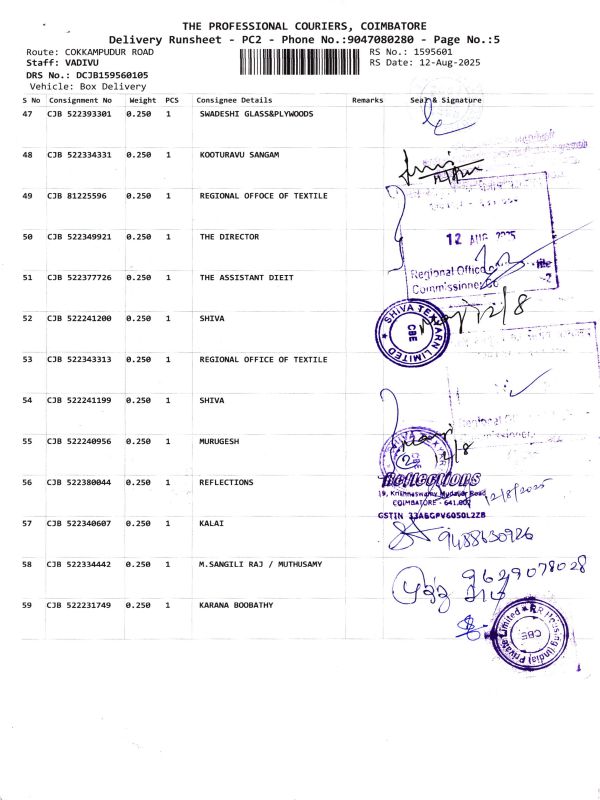 THE PROFESSIONAL COURIERS, COIMBATORE
Delivery Runsheet - PC2 - Phone No.:9047080280 - Page No.:5
Route: COKKAMPUDUR ROAD RS No.: 1595601
Staff: VADIVU RS Date: 12-Aug-2025
DRS No.: DCJB159560105
Vehicle: Box Delivery
S No Consignment No Weight PCS Consignee Details Remarks Seal & Signature
47 CJB 522393301 0.250 1 SWADESHI GLASS&PLYWOODS
48 CJB 522334331 0.250 1 KOOTURAVU SANGAM
49 CJB 81225596 0.250 1 REGIONAL OFFOCE OF TEXTILE
50 CJB 522349921 0.250 1 THE DIRECTOR
12 AUG 2025
51 CJB 522377726 0.250 1 THE ASSISTANT DIEIT
Regional Office
Commissioner
52 CJB 522241200 0.250 1 SHIVA
SHIVA TEXYARN LIMITED
CBE
12/8
53 CJB 522343313 0.250 1 REGIONAL OFFICE OF TEXTILE
54 CJB 522241199 0.250 1 SHIVA
55 CJB 522240956 0.250 1 MURUGESH
12/8
56 CJB 522380044 0.250 1 REFLECTIONS
Reflections
19, Krishnaswamy Mudaliar Road
COIMBATORE - 641.002
GSTIN 33ABGPV6050L2ZB
12/8/2025
57 CJB 522340607 0.250 1 KALAI
9488630926
58 CJB 522334442 0.250 1 M.SANGILI RAJ / MUTHUSAMY
9629078028
59 CJB 522231749 0.250 1 KARANA BOOBATHY
RR Housing (India) Private Limited
CBE